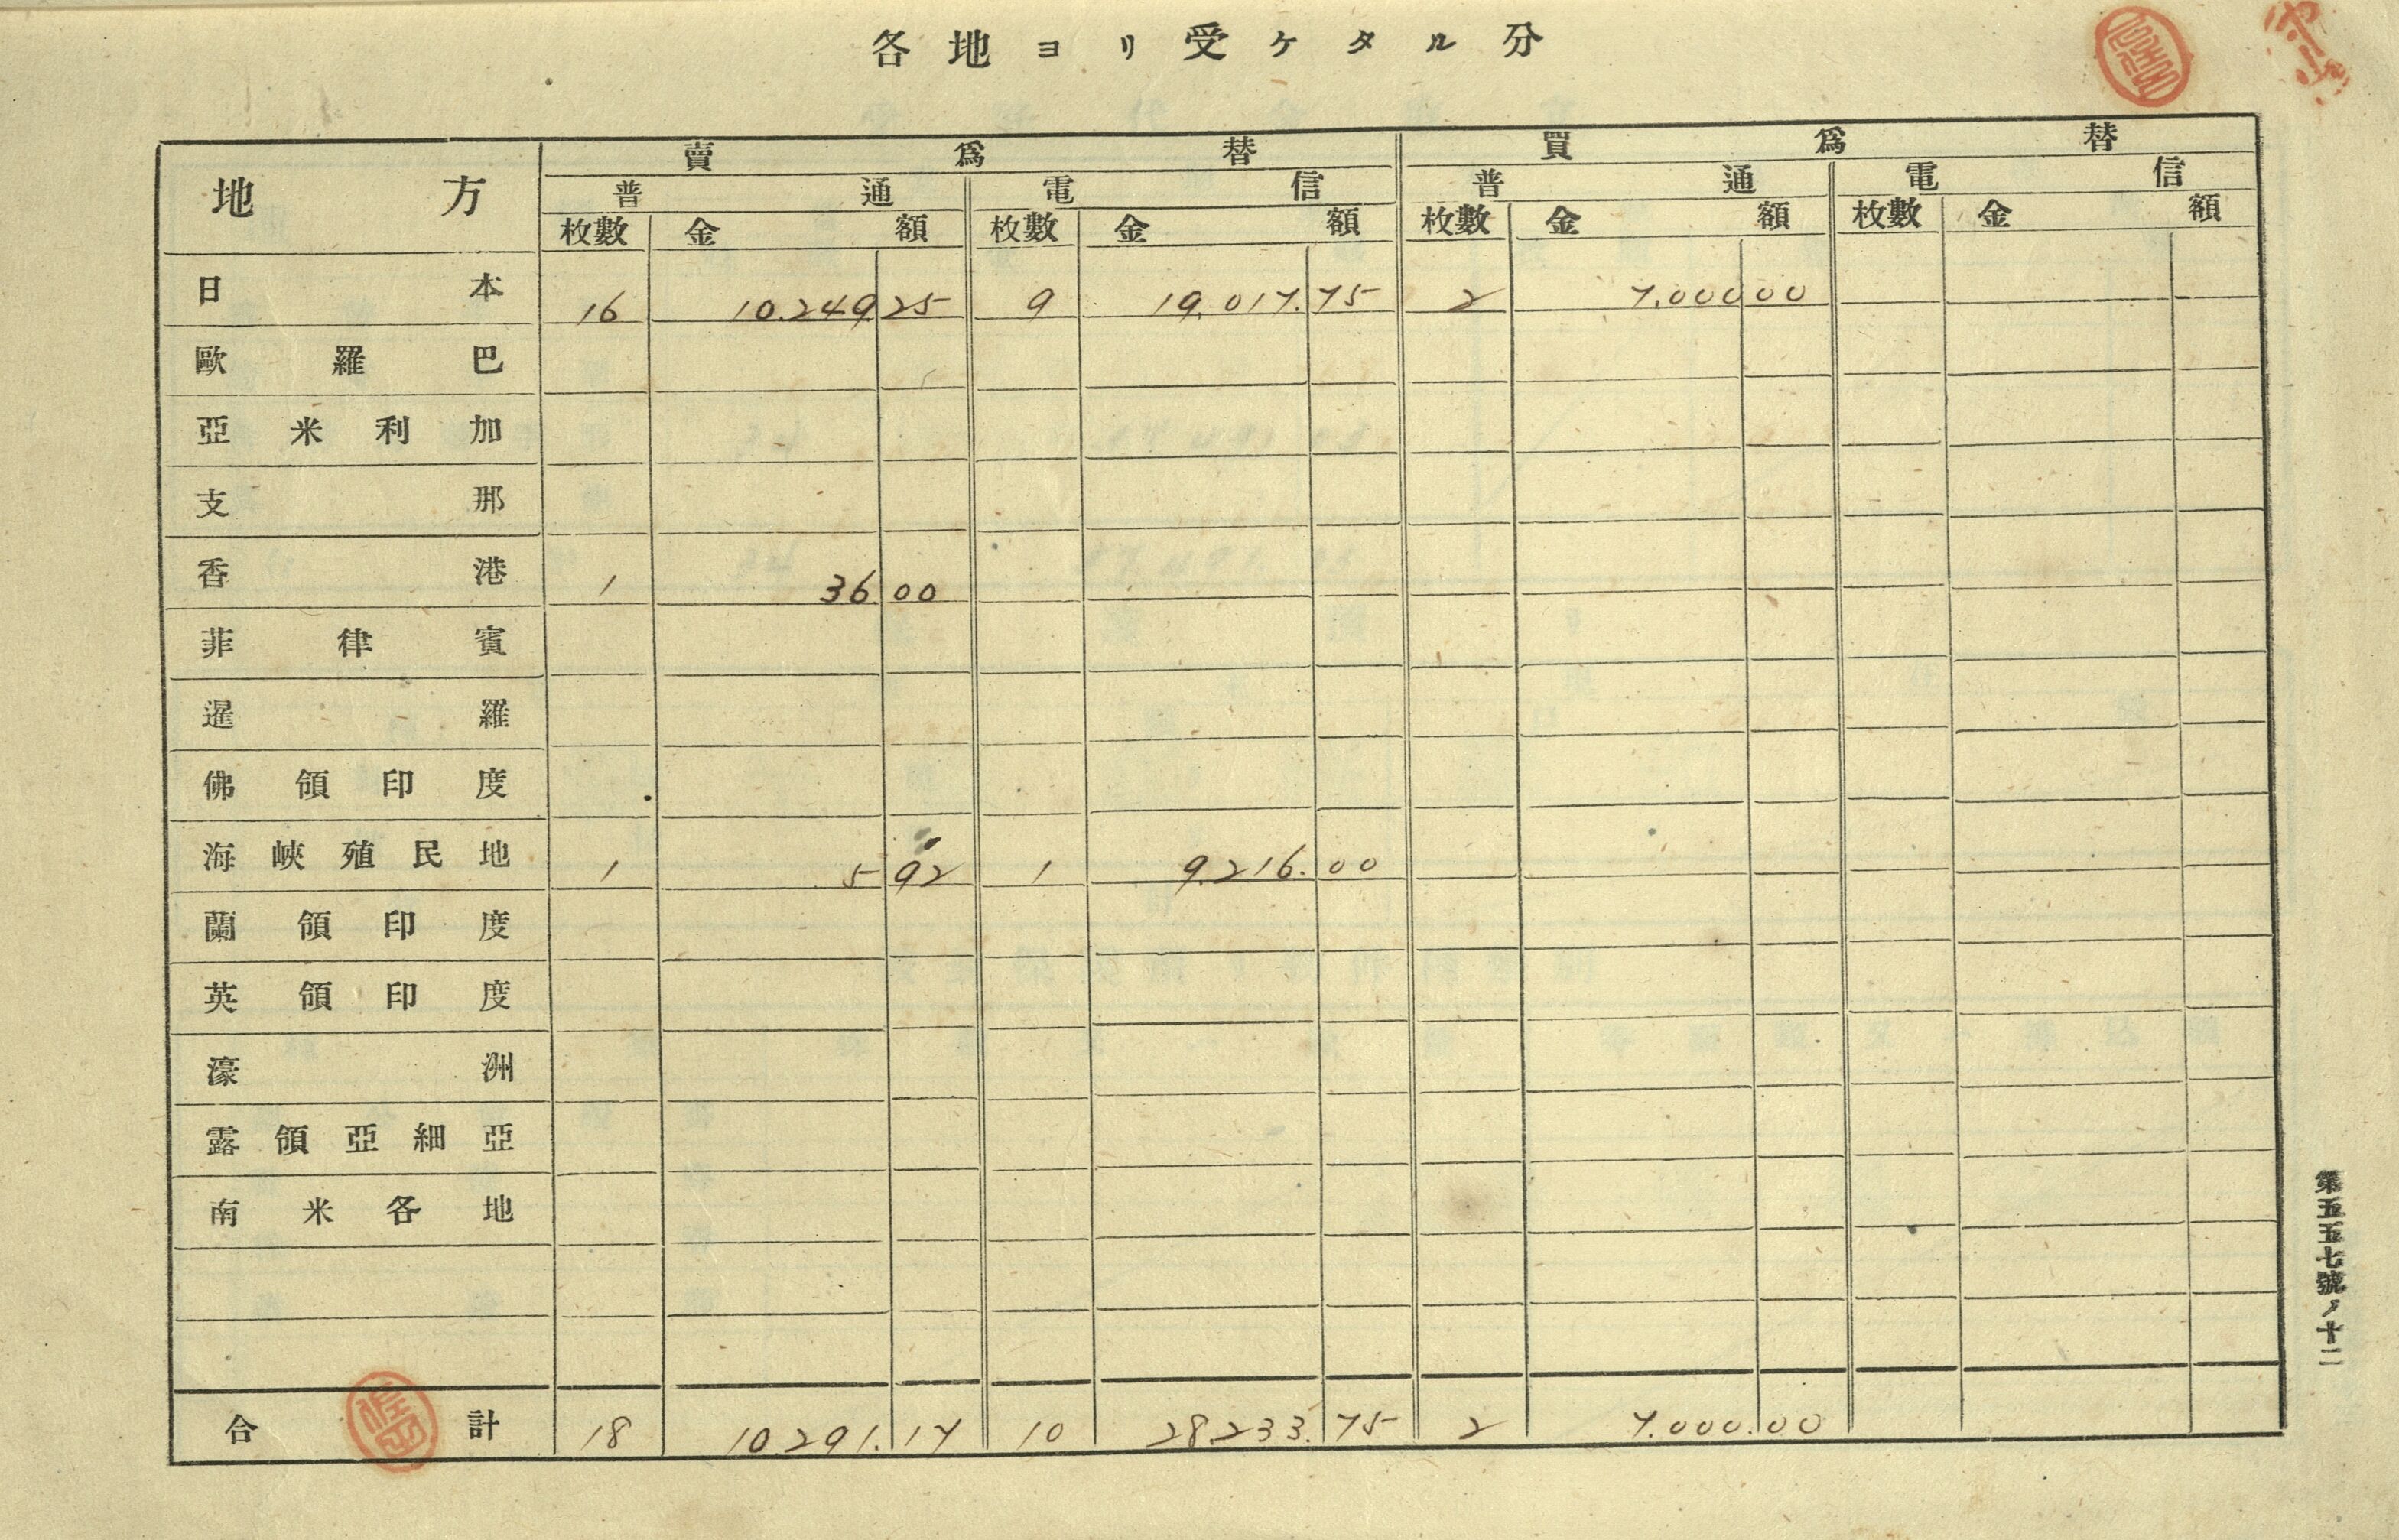 各地ヨリ受ケタル分
地方 賣為替 買為替
普通 電信 普通 電信
枚數 金額 枚數 金額 枚數 金額 枚數 金額
日本 16 10.249 25 9 19.017. 75 2 7.000 00
歐羅巴
亞米利加
支那
香港 1 36 00
菲律賓
暹羅
佛領印度
海峽殖民地 1 5 92 1 9.216. 00
蘭領印度
英領印度
濠洲
露領亞細亞
南米各地
合計 18 10.291. 17 10 28.233. 75 2 7.000. 00
第五五七號ノ十二